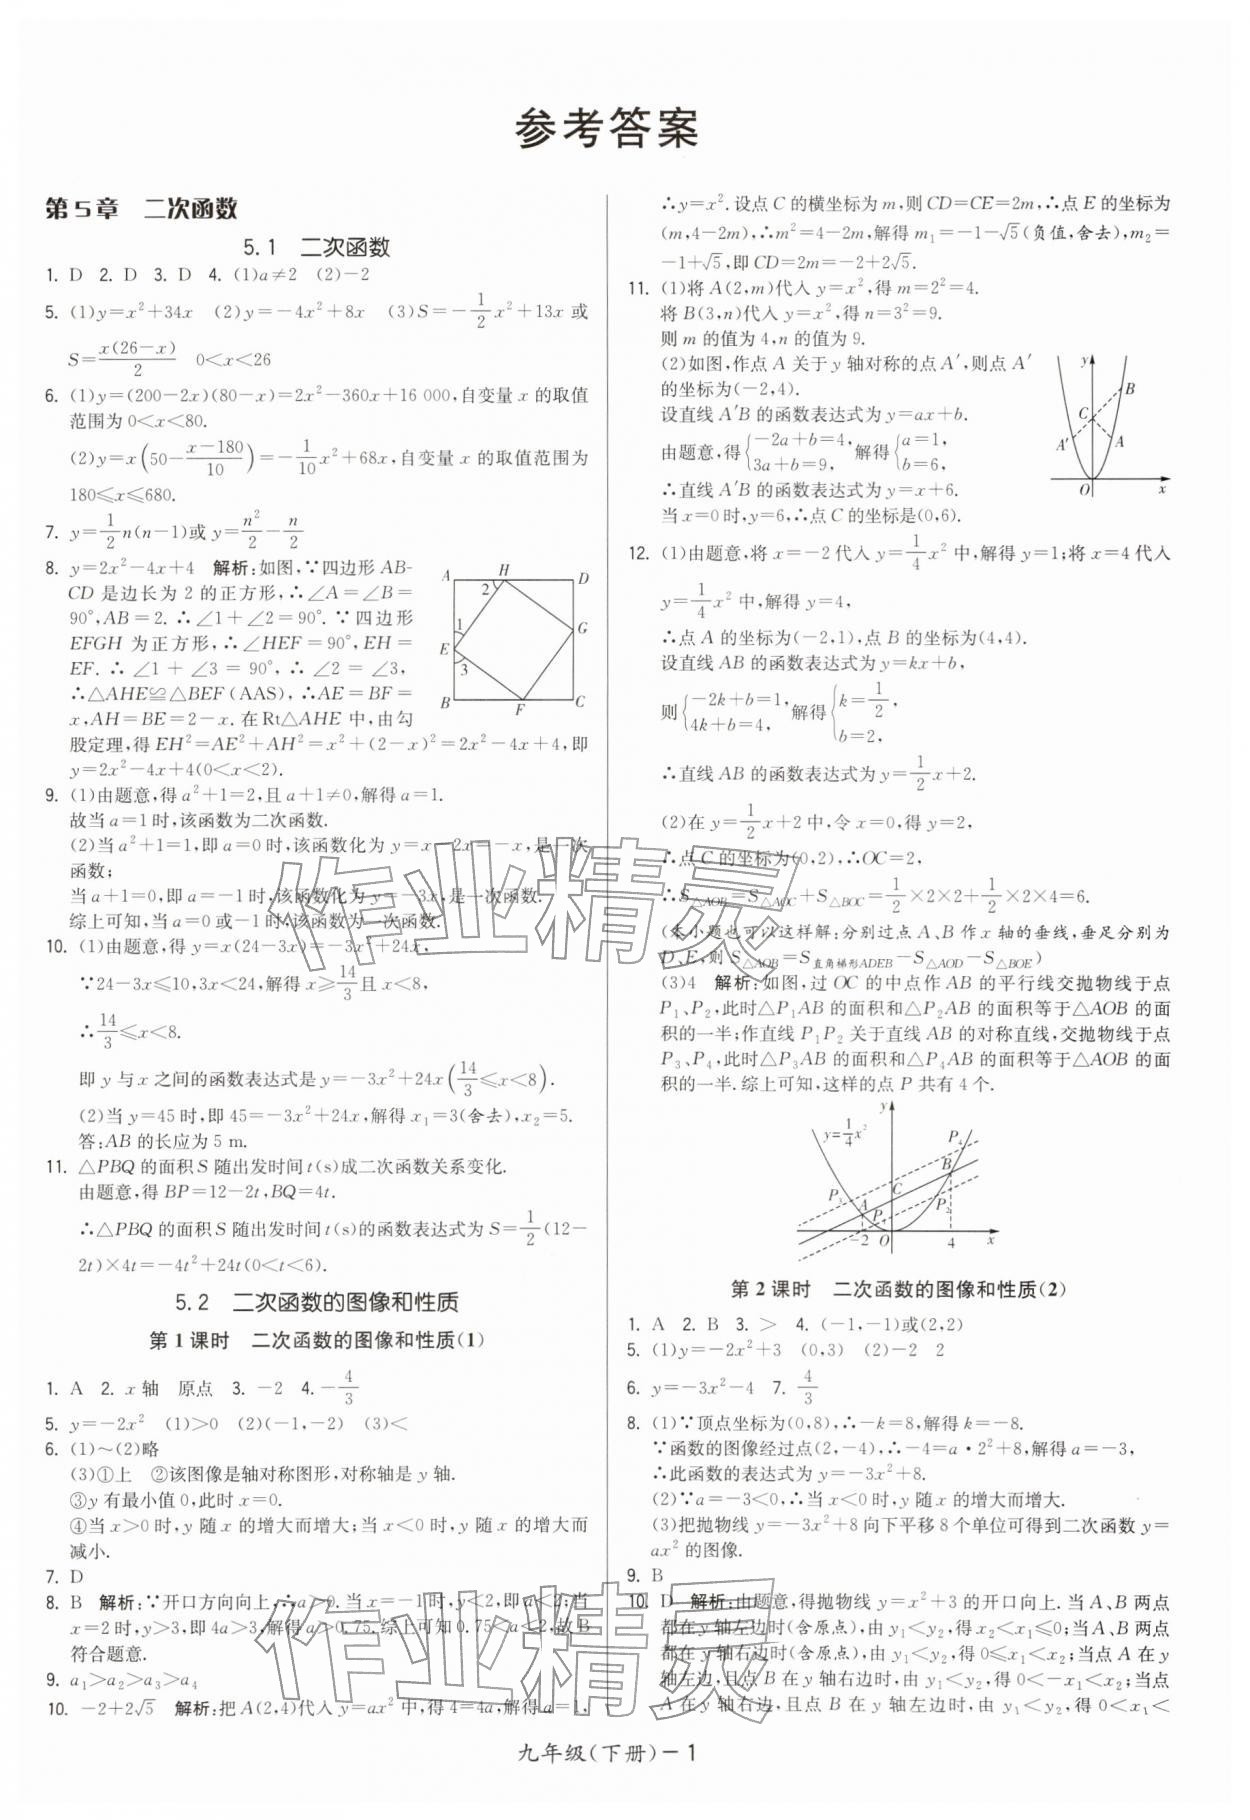 参考答案
第5章　二次函数
5.1　二次函数
1. D　2. D　3. D　4. (1)a≠2　(2)-2
5. (1)y=x²+34x　(2)y=-4x²+8x　(3)S=-1/2x²+13x 或
S=x(26-x)/2　0<x<26
6. (1)y=(200-2x)(80-x)=2x²-360x+16 000,自变量 x 的取值
范围为 0<x<80.
(2)y=x(50-(x-180)/10)=-1/10x²+68x,自变量 x 的取值范围为
180≤x≤680.
7. y=1/2n(n-1)或 y=n²/2-n/2
8. y=2x²-4x+4　解析:如图,∵四边形 AB-
CD 是边长为 2 的正方形,∴∠A=∠B=
90°,AB=2.∴∠1+∠2=90°.∵四边形
EFGH 为正方形,∴∠HEF=90°,EH=
EF.∴∠1+∠3=90°,∴∠2=∠3,
∴△AHE≌△BEF(AAS),∴AE=BF=
x,AH=BE=2-x.在Rt△AHE 中,由勾
股定理,得 EH²=AE²+AH²=x²+(2-x)²=2x²-4x+4,即
y=2x²-4x+4(0<x<2).
A H D
2
1
G
E
3
B F C
9. (1)由题意,得 a²+1=2,且 a+1≠0,解得 a=1.
故当 a=1 时,该函数为二次函数.
(2)当 a²+1=1,即 a=0 时,该函数化为 y=x-2x=-x,是一次
函数;
当 a+1=0,即 a=-1 时,该函数化为 y=-3x,是一次函数.
综上可知,当 a=0 或-1 时,该函数为一次函数.
10. (1)由题意,得 y=x(24-3x)=-3x²+24x,
∵24-3x≤10,3x<24,解得 x≥14/3且 x<8,
∴14/3≤x<8.
即 y 与 x 之间的函数表达式是 y=-3x²+24x(14/3≤x<8).
(2)当 y=45 时,即 45=-3x²+24x,解得 x₁=3(舍去),x₂=5.
答:AB 的长应为 5 m.
11. △PBQ 的面积 S 随出发时间 t(s)成二次函数关系变化.
由题意,得 BP=12-2t,BQ=4t.
∴△PBQ 的面积 S 随出发时间 t(s)的函数表达式为 S=1/2(12-
2t)×4t=-4t²+24t(0<t<6).
5.2　二次函数的图像和性质
第 1 课时　二次函数的图像和性质(1)
1. A　2. x 轴　原点　3. -2　4. -4/3
5. y=-2x²　(1)>0　(2)(-1,-2)　(3)<
6. (1)~(2)略
(3)①上　②该图像是轴对称图形,对称轴是 y 轴.
③y 有最小值 0,此时 x=0.
④当 x>0 时,y 随 x 的增大而增大;当 x<0 时,y 随 x 的增大而
减小.
7. D
8. B　解析:∵开口方向向上,∴a>0.当 x=-1 时,y<2,即 a<2;当
x=2 时,y>3,即 4a>3,解得 a>0.75.综上可知 0.75<a<2.故 B
符合题意.
9. a₁>a₂>a₃>a₄
10. -2+2√5　解析:把 A(2,4)代入 y=ax² 中,得 4=4a,解得 a=1,
∴y=x².设点 C 的横坐标为 m,则 CD=CE=2m,∴点 E 的坐标为
(m,4-2m),∴m²=4-2m,解得 m₁=-1-√5(负值,舍去),m₂=
-1+√5,即 CD=2m=-2+2√5.
11. (1)将 A(2,m)代入 y=x²,得 m=2²=4.
将 B(3,n)代入 y=x²,得 n=3²=9.
则 m 的值为 4,n 的值为 9.
(2)如图,作点 A 关于 y 轴对称的点 A′,则点 A′
的坐标为(-2,4).
设直线 A′B 的函数表达式为 y=ax+b.
由题意,得{-2a+b=4, 3a+b=9, 解得{a=1, b=6,
∴直线 A′B 的函数表达式为 y=x+6.
当 x=0 时,y=6,∴点 C 的坐标是(0,6).
y
B
C
A′ A
O x
12. (1)由题意,将 x=-2 代入 y=1/4x² 中,解得 y=1;将 x=4 代入
y=1/4x² 中,解得 y=4,
∴点 A 的坐标为(-2,1),点 B 的坐标为(4,4).
设直线 AB 的函数表达式为 y=kx+b,
则{-2k+b=1, 4k+b=4, 解得{k=1/2, b=2,
∴直线 AB 的函数表达式为 y=1/2x+2.
(2)在 y=1/2x+2 中,令 x=0,得 y=2,
∴点 C 的坐标为(0,2),∴OC=2,
∴S△AOB=S△AOC+S△BOC=1/2×2×2+1/2×2×4=6.
(本小题也可以这样解:分别过点 A、B 作 x 轴的垂线,垂足分别为
D、E,则 S△AOB=S直角梯形ADEB-S△AOD-S△BOE)
(3)4　解析:如图,过 OC 的中点作 AB 的平行线交抛物线于点
P₁、P₂,此时△P₁AB 的面积和△P₂AB 的面积等于△AOB 的面
积的一半;作直线 P₁P₂ 关于直线 AB 的对称直线,交抛物线于点
P₃、P₄,此时△P₃AB 的面积和△P₄AB 的面积等于△AOB 的面
积的一半.综上可知,这样的点 P 共有 4 个.
y
y=1/4x²
P₄
B
P₃ C
A P₁ P₂
-2 O 4 x
第 2 课时　二次函数的图像和性质(2)
1. A　2. B　3. >　4. (-1,-1)或(2,2)
5. (1)y=-2x²+3　(0,3)　(2)-2　2
6. y=-3x²-4　7. 4/3
8. (1)∵顶点坐标为(0,8),∴-k=8,解得 k=-8.
∵函数的图像经过点(2,-4),∴-4=a·2²+8,解得 a=-3,
∴此函数的表达式为 y=-3x²+8.
(2)∵a=-3<0,∴当 x<0 时,y 随 x 的增大而增大.
(3)把抛物线 y=-3x²+8 向下平移 8 个单位可得到二次函数 y=
ax² 的图像.
9. B
10. D　解析:由题意,得抛物线 y=x²+3 的开口向上.当 A、B 两点
都在 y 轴左边时(含原点),由 y₁<y₂,得 x₂<x₁≤0;当 A、B 两点
都在 y 轴右边时(含原点),由 y₁<y₂,得 0≤x₁<x₂;当点 A 在 y
轴左边,且点 B 在 y 轴右边时,由 y₁<y₂,得 0<-x₁<x₂;当点
A 在 y 轴右边,且点 B 在 y 轴左边时,由 y₁<y₂,得 0<x₁<
作业精灵
作业精灵
九年级(下册)-1